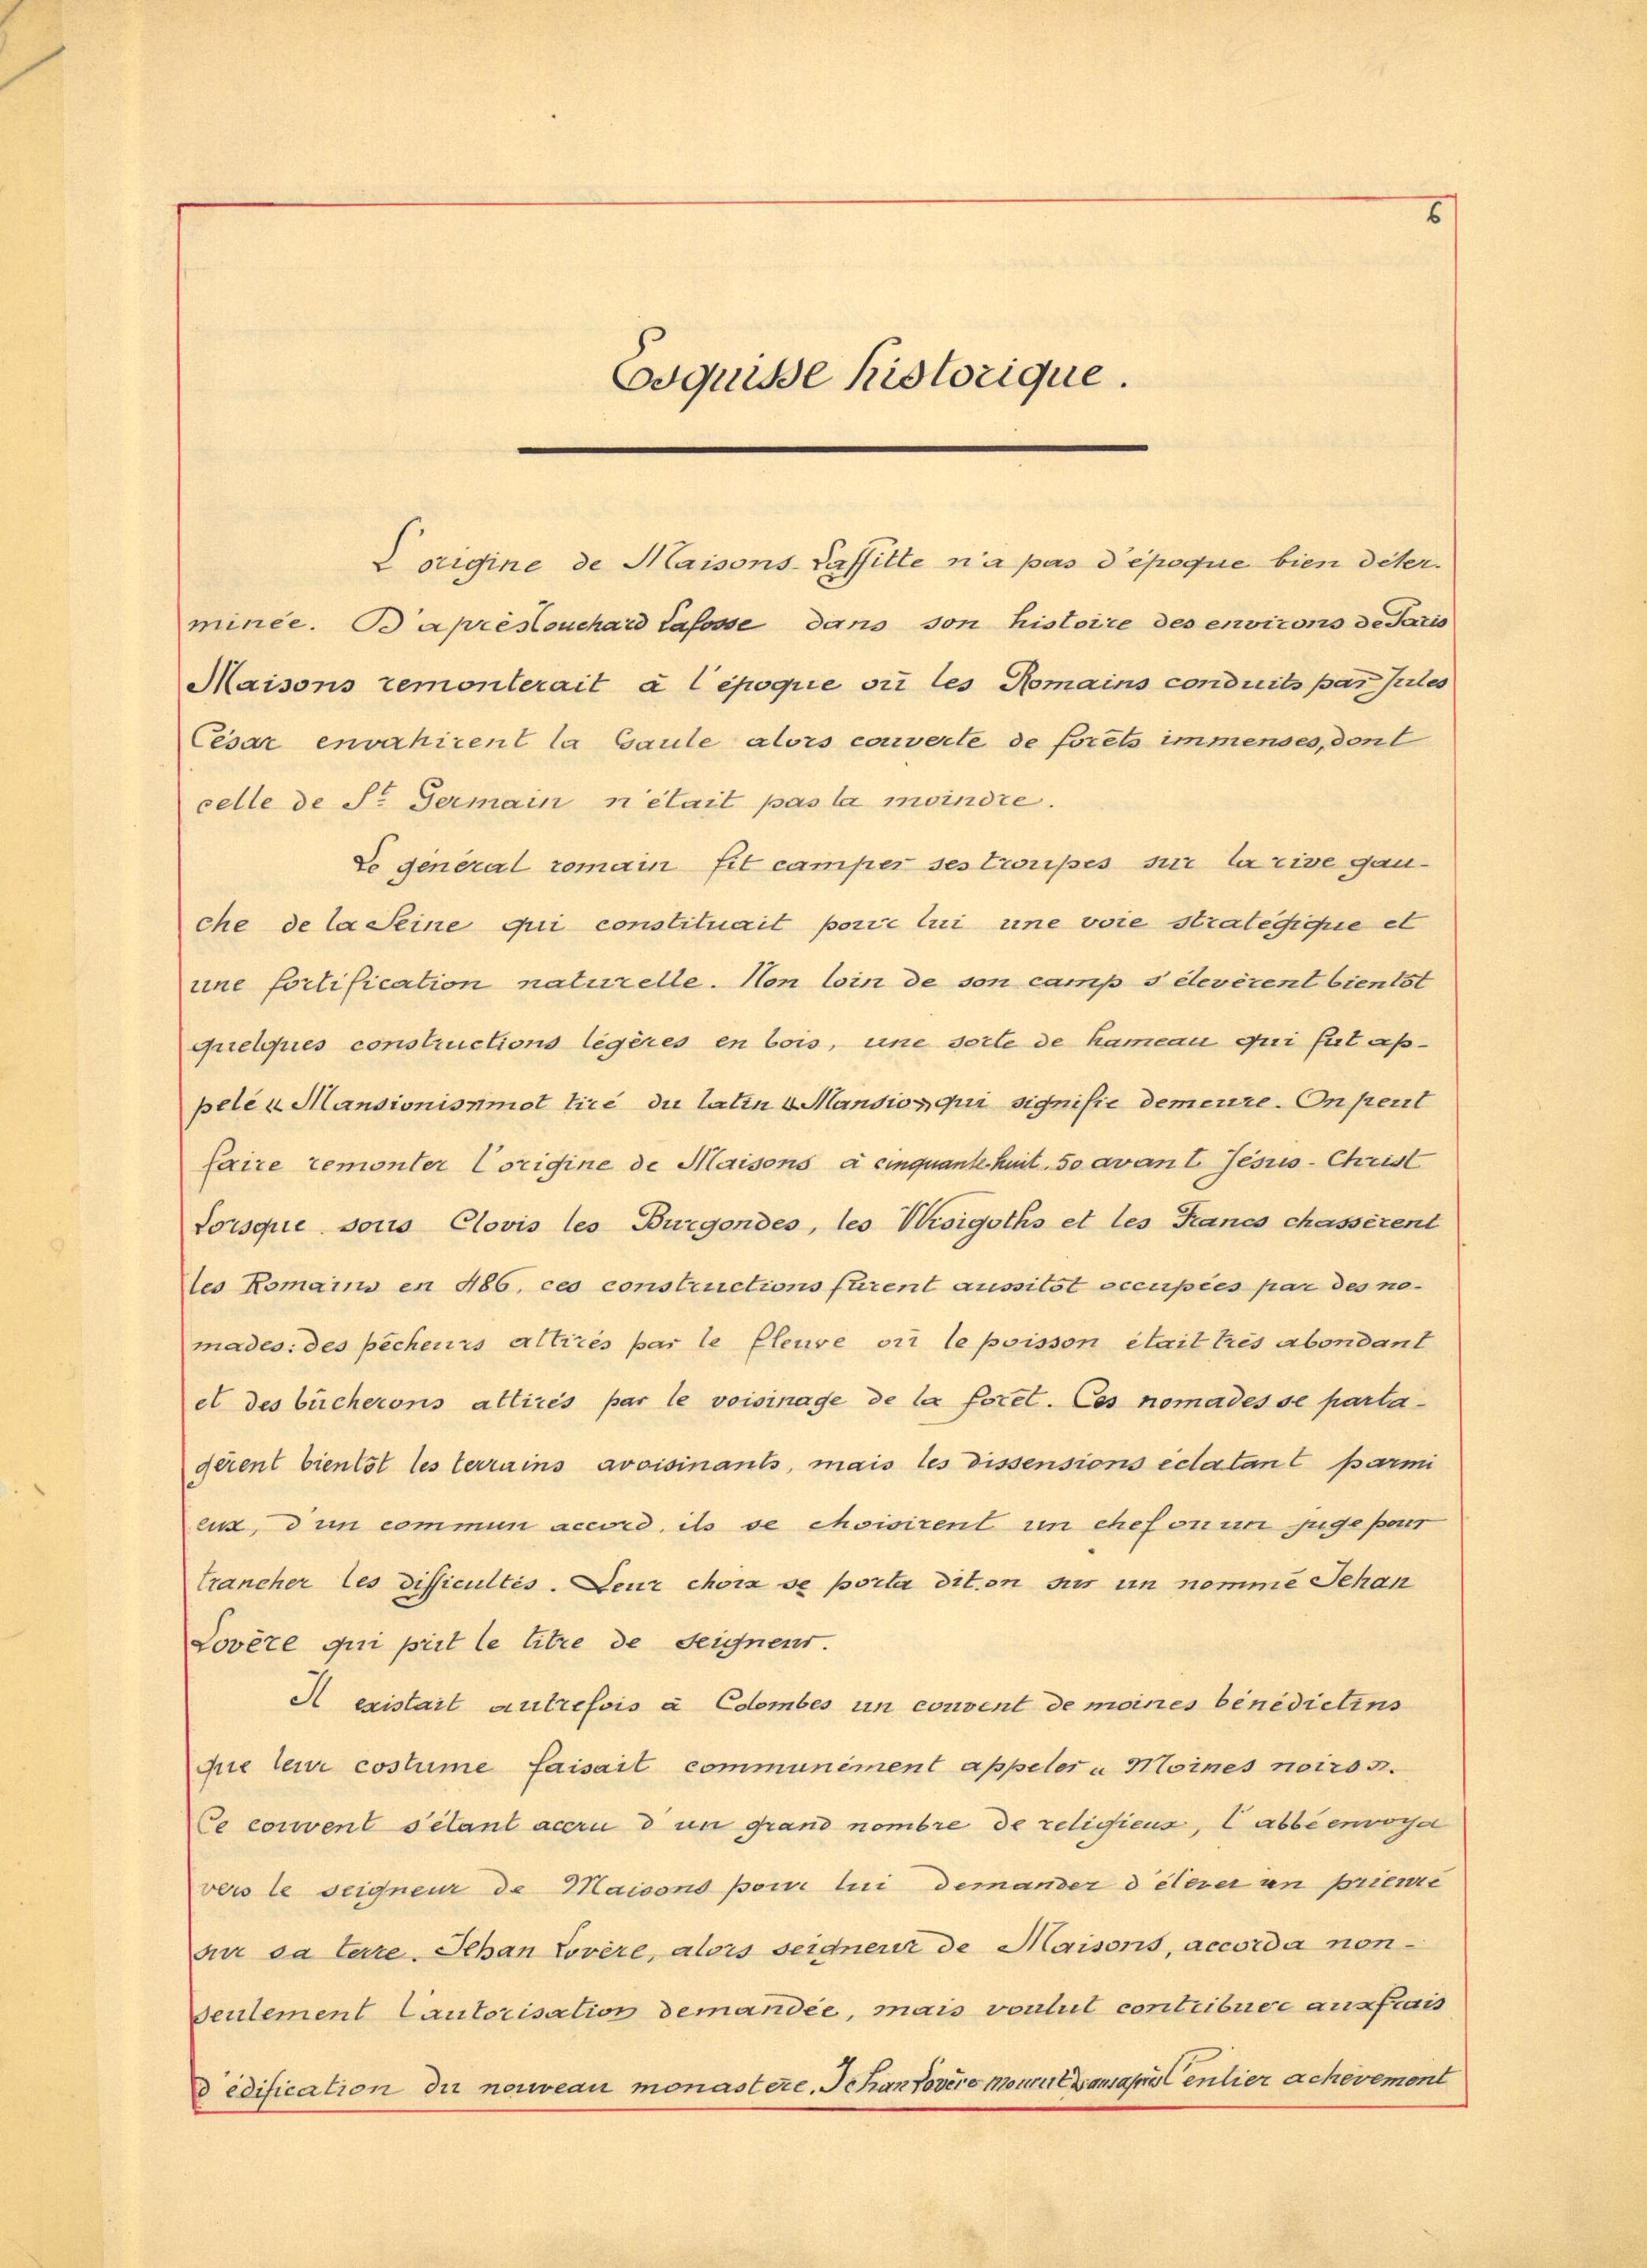 6
Esquisse historique.
L'origine de Maisons-Laffitte n'a pas d'époque bien déter-
minée. D'après Touchard Lafosse dans son histoire des environs de Paris
Maisons remonterait à l'époque où les Romains conduits par Jules
César envahirent la Gaule alors couverte de forêts immenses, dont
celle de St Germain n'était pas la moindre.
Le général romain fit camper ses troupes sur la rive gau-
che de la Seine qui constituait pour lui une voie stratégique et
une fortification naturelle. Non loin de son camp s'élevèrent bientôt
quelques constructions légères en bois, une sorte de hameau qui fut ap-
pelé « Mansionis » mot tiré du latin « Mansio » qui signifie demeure. On peut
faire remonter l'origine de Maisons à cinquante huit. 50 avant Jésus-Christ
Lorsque sous Clovis les Burgondes, les Wisigoths et les Francs chassèrent
les Romains en 486, ces constructions furent aussitôt occupées par des no-
mades: des pécheurs attirés par le fleuve où le poisson était très abondant
et des bûcherons attirés par le voisinage de la foret. Ces nomades se parta-
gèrent bientôt les terrains avoisinants, mais les dissensions éclatant parmi
eux, d'un commun accord, ils se choisirent un chef ou un juge pour
trancher les difficultés. Leur choix se porta dit.on sur un nommé Jehan
Lovère qui prit le titre de Seigneur.
Il existait autrefois à Colombes un couvent de moines bénédictins
que leur costume faisait communément appeler « Moines noirs ».
Ce couvent s'étant accru d'un grand nombre de religieux, l'abbé envoya
vers le seigneur de Maisons pour lui demander d'élever un prieuré
sur sa terre. Jehan Lovère, alors seigneur de Maisons, accorda non-
seulement l'autorisation demandée, mais voulut contribuer aux frais
d'édification du nouveau monastère. Jehan Lovère mourut après l'entier achèvement